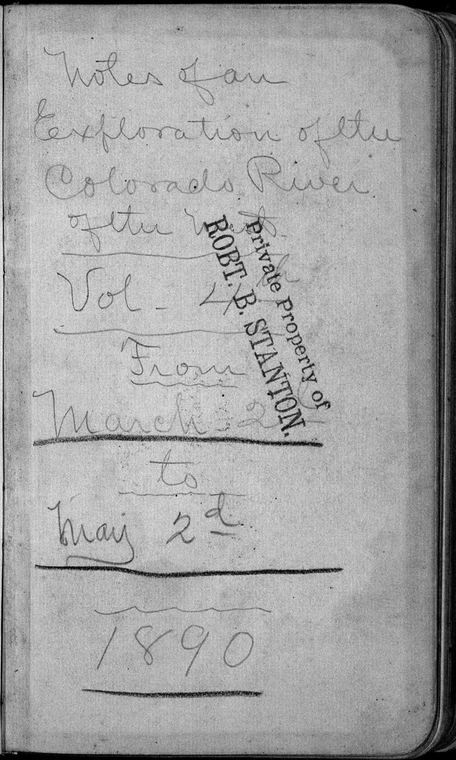 Notes of an
Exploration of the
Colorado River
of the West.
Vol - 4
From
March 2
to
May 2d
1890
Private Property of
ROBT. B. STANTON.